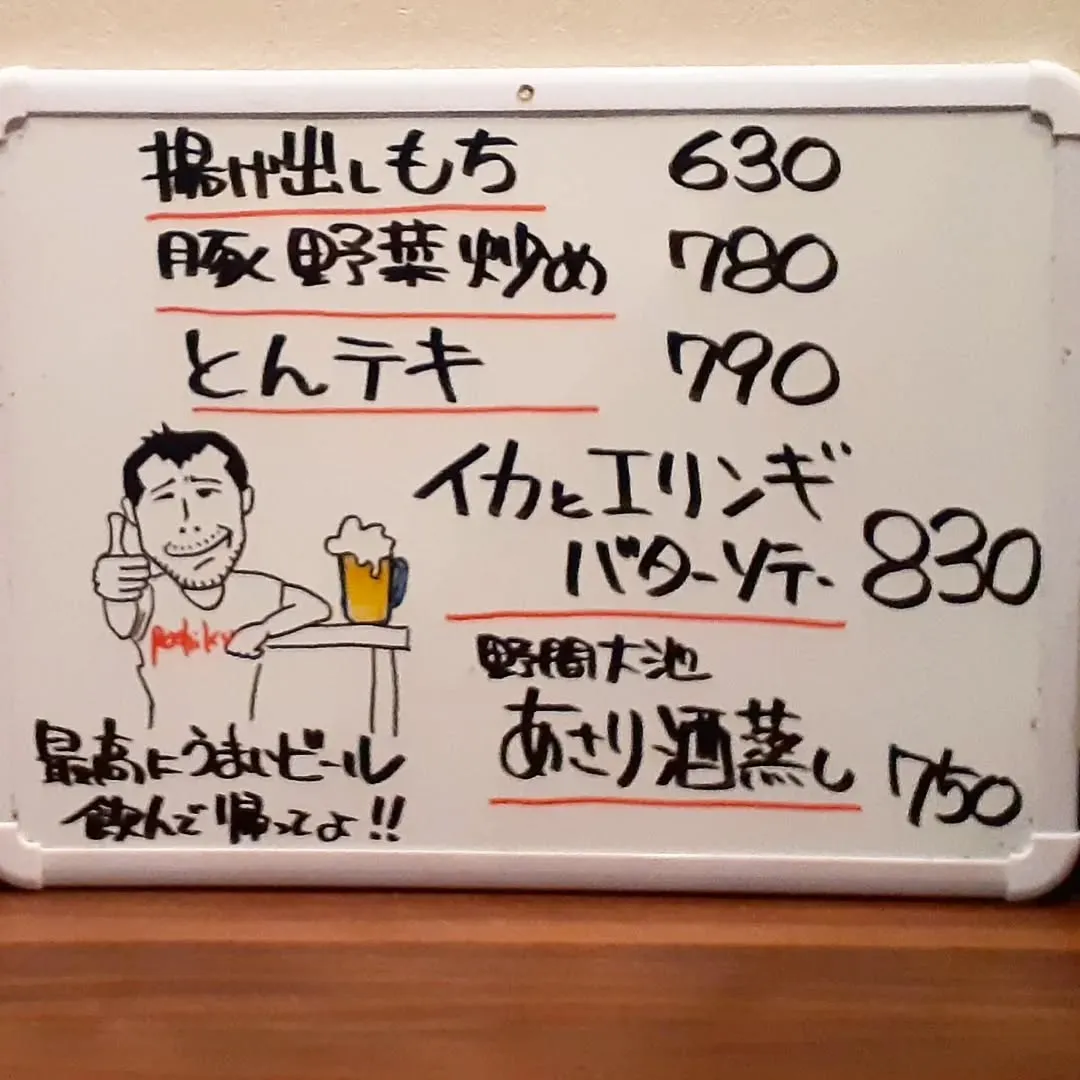 揚げ出しもち 630
豚野菜炒め 780
とんテキ 790
イカとエリンギ
バターソテー 830
野間大池
あさり酒蒸し 750
最高にうまいビール
飲んで帰ってよ!!